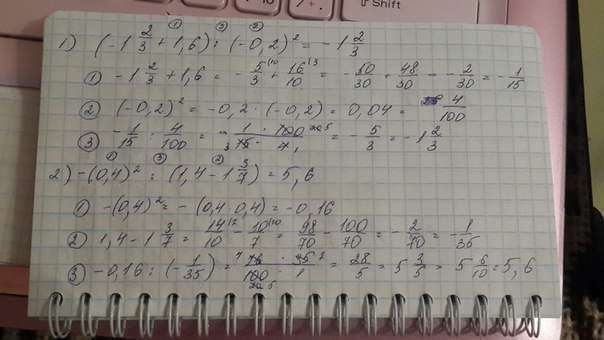 Shift
1) (-1 2/3 + 1,6) : (-0,2)² = -1 2/3
① -1 2/3 + 1,6 = -5/3 + 16/10 = -50/30 + 48/30 = -2/30 = -1/15
② (-0,2)² = -0,2 · (-0,2) = 0,04 = 4/100
③ -1/15 : 4/100 = -1 · 100/15 · 4 = -5/3 = -1 2/3
2) -(0,4)² : (1,4 - 1 3/7) = 5,6
① -(0,4)² = -(0,4 · 0,4) = -0,16
② 1,4 - 1 3/7 = 14/10 - 10/7 = 98/70 - 100/70 = -2/70 = -1/35
③ -0,16 : (-1/35) = 16 · 35/100 · 1 = 28/5 = 5 3/5 = 5 6/10 = 5,6